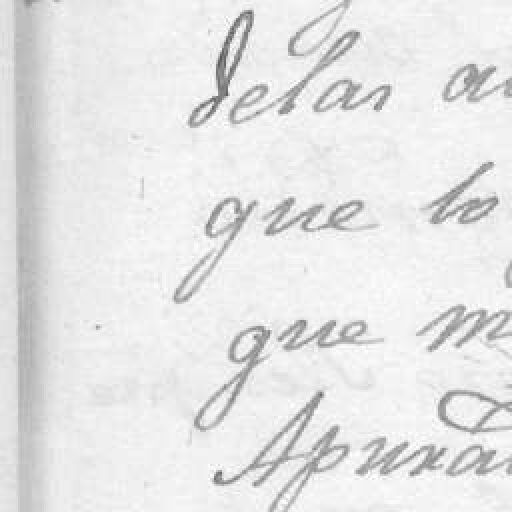 delas a
que lo
que m
Apuxa